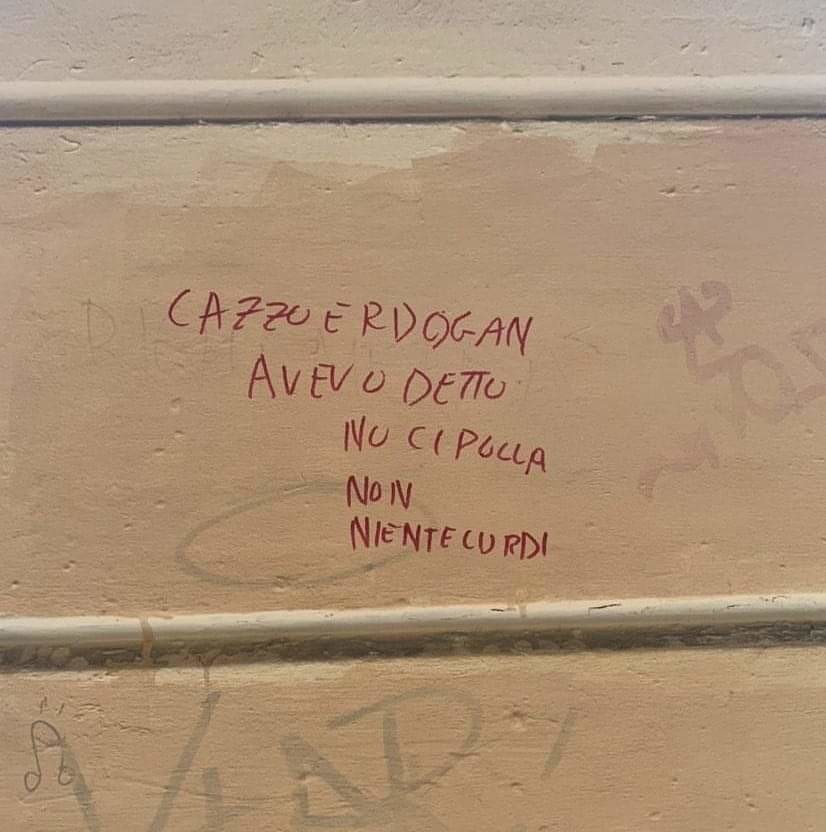 CAZZO ERDOGAN
AVEVO DETTO
NO CIPOLLA
NON
NIENTE CURDI
VLAD